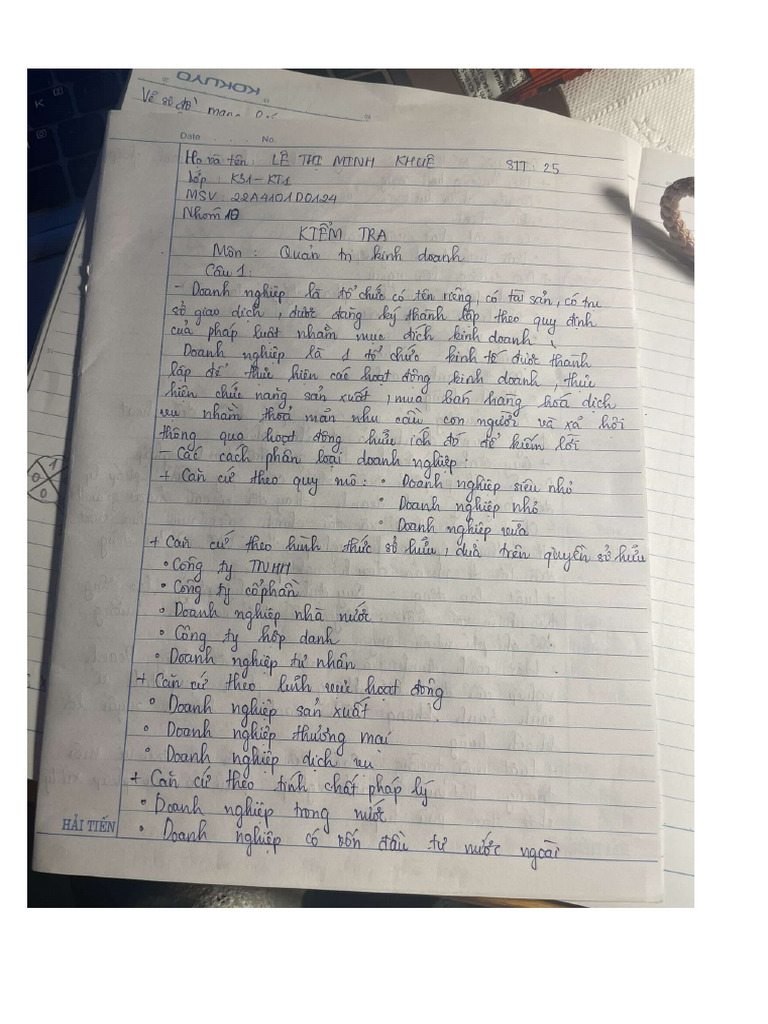 KOKUYO
Vẽ sơ đồ mạng
Date . . . . No.
Họ và tên: LÊ THỊ MINH KHUÊ STT: 25
Lớp: K31-KT1
MSV: 22A4101D0124
Nhóm 10
KIỂM TRA
Môn: Quản trị kinh doanh
Câu 1:
- Doanh nghiệp là tổ chức có tên riêng, có tài sản, có trụ
sở giao dịch, được đăng ký thành lập theo quy định
của pháp luật nhằm mục đích kinh doanh.
Doanh nghiệp là 1 tổ chức kinh tế được thành
lập để thực hiện các hoạt động kinh doanh, thực
hiện chức năng sản xuất, mua bán hàng hoá dịch
vụ nhằm thoả mãn nhu cầu con người và xã hội
thông qua hoạt động hữu ích đó để kiếm lời
- Các cách phân loại doanh nghiệp:
+ Căn cứ theo quy mô: • Doanh nghiệp siêu nhỏ
• Doanh nghiệp nhỏ
• Doanh nghiệp vừa
+ Căn cứ theo hình thức sở hữu, dựa trên quyền sở hữu
• Công ty TNHH
• Công ty cổ phần
• Doanh nghiệp nhà nước
• Công ty hợp danh
• Doanh nghiệp tư nhân
+ Căn cứ theo lĩnh vực hoạt động
• Doanh nghiệp sản xuất
• Doanh nghiệp thương mại
• Doanh nghiệp dịch vụ
+ Căn cứ theo tính chất pháp lý
• Doanh nghiệp trong nước
• Doanh nghiệp có vốn đầu tư nước ngoài
HẢI TIẾN